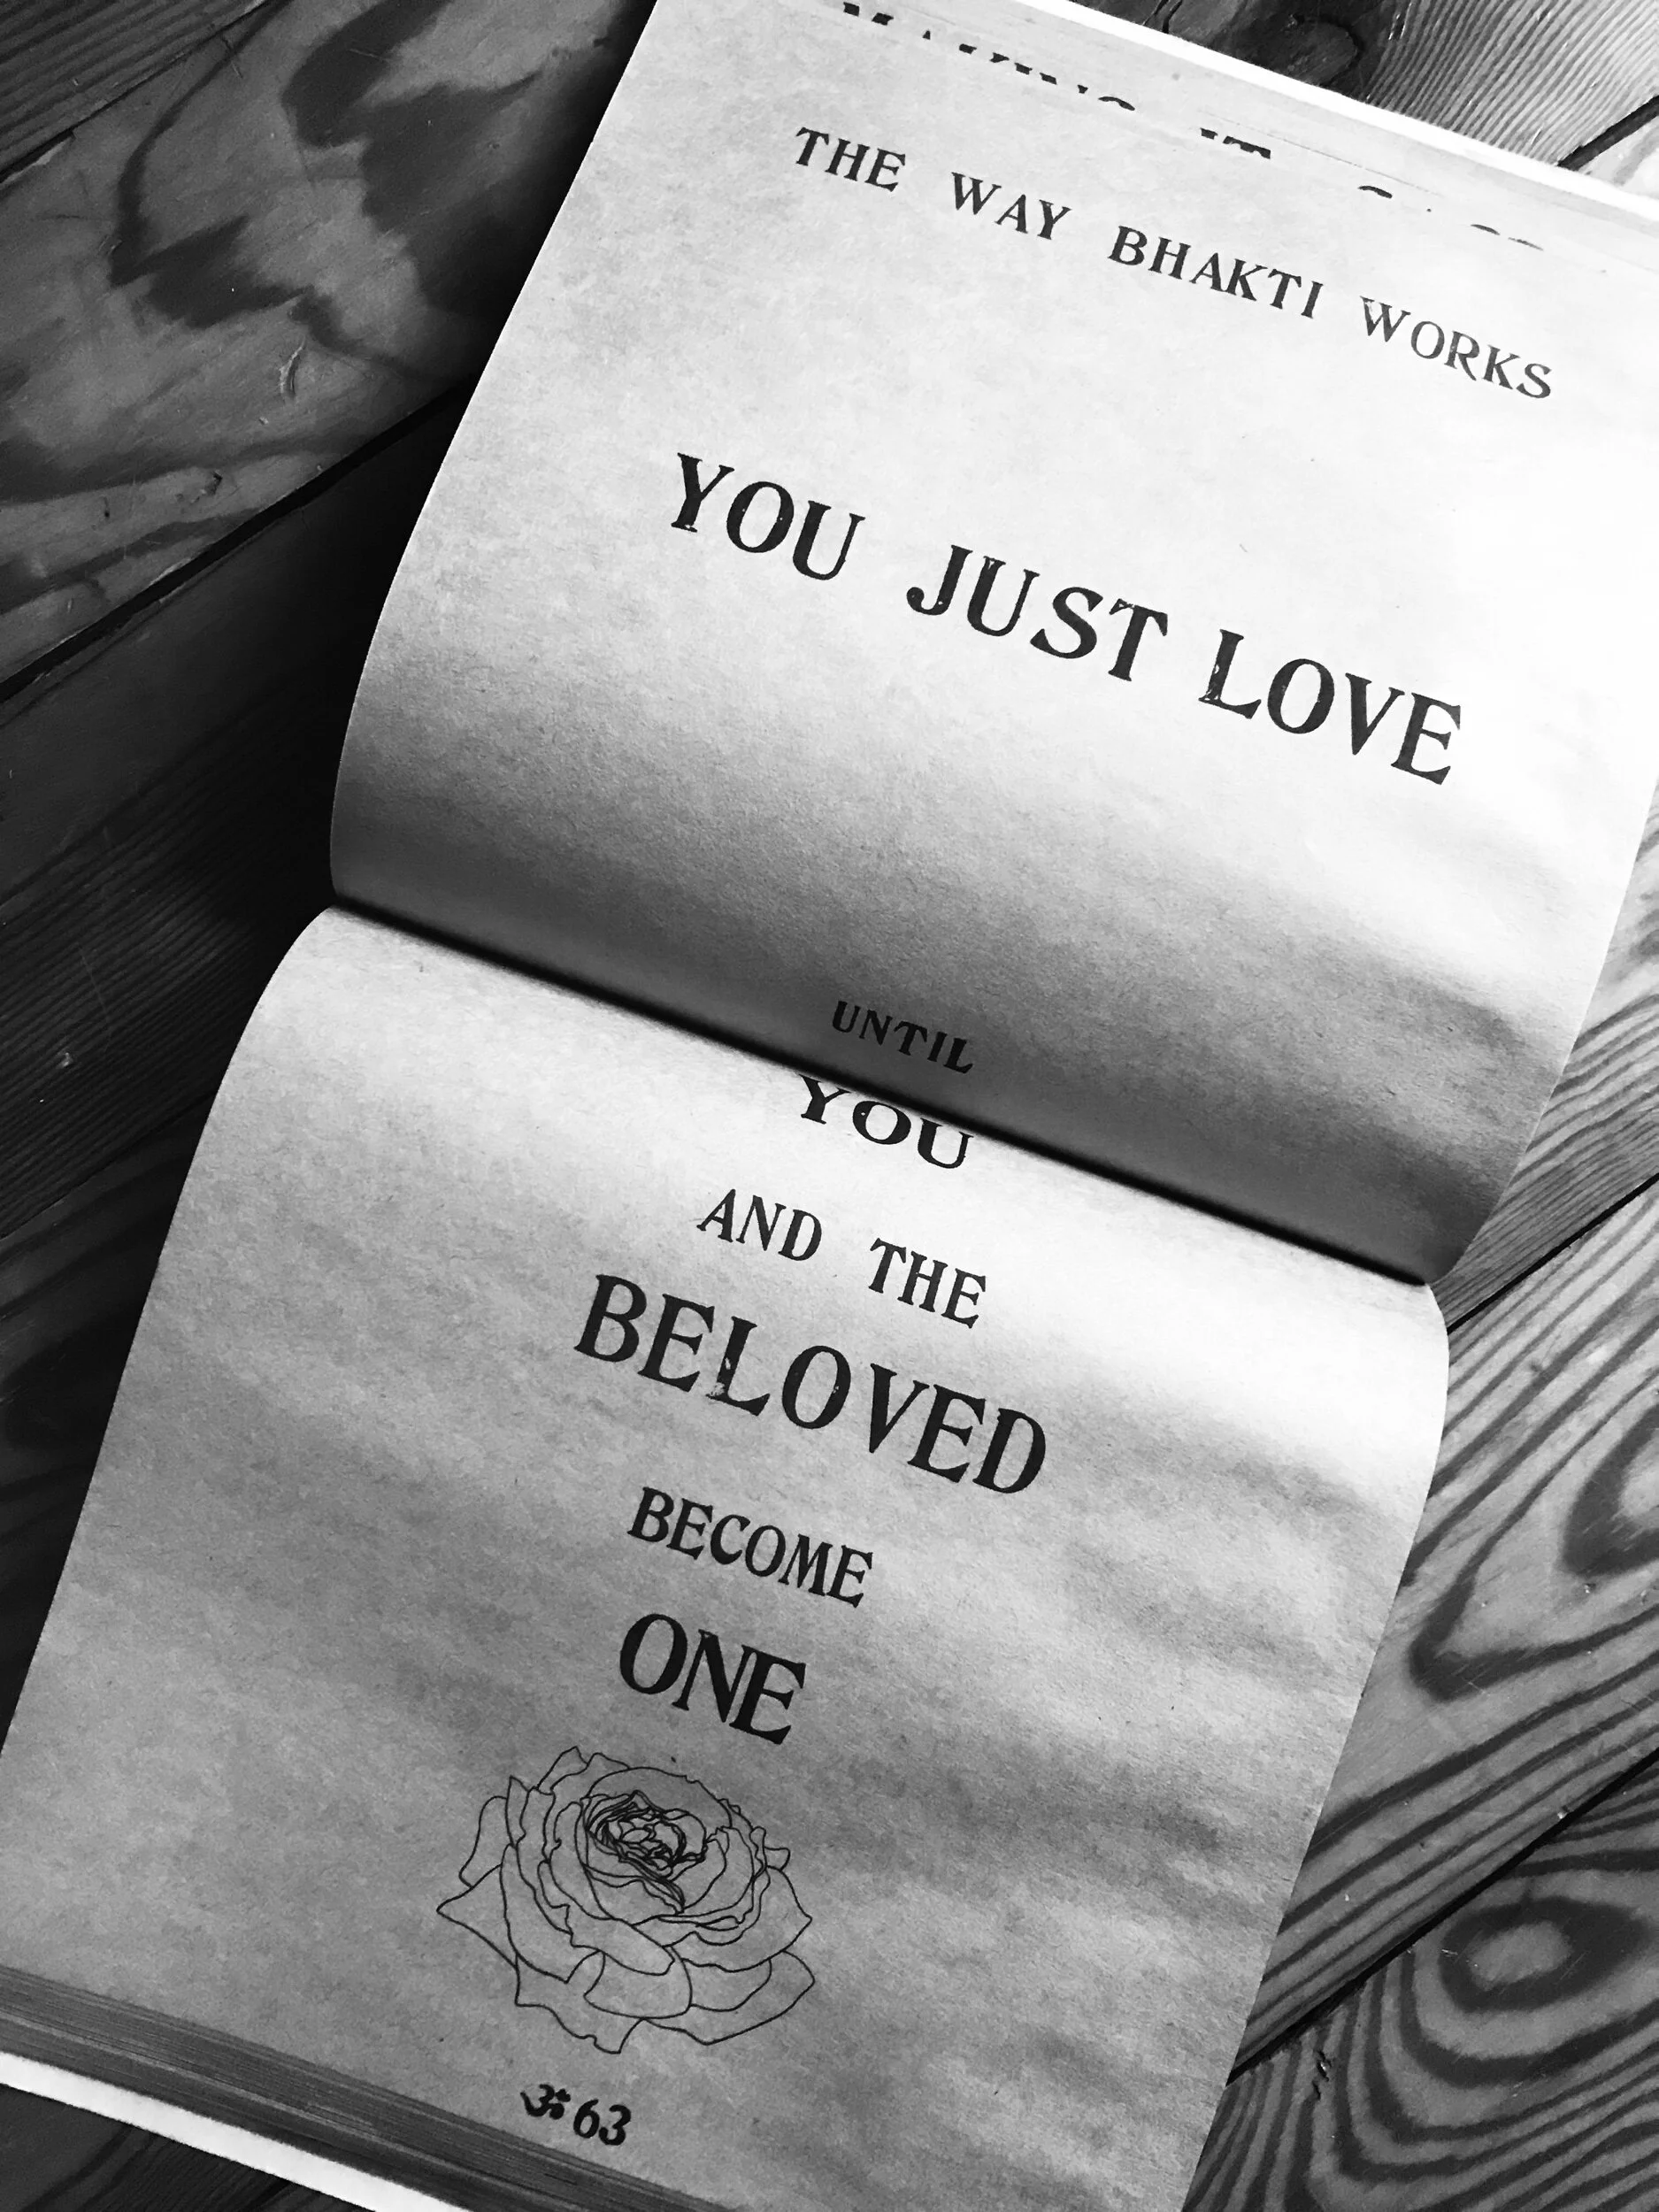 THE WAY BHAKTI WORKS
YOU JUST LOVE
UNTIL
YOU
AND THE
BELOVED
BECOME
ONE
ॐ 63